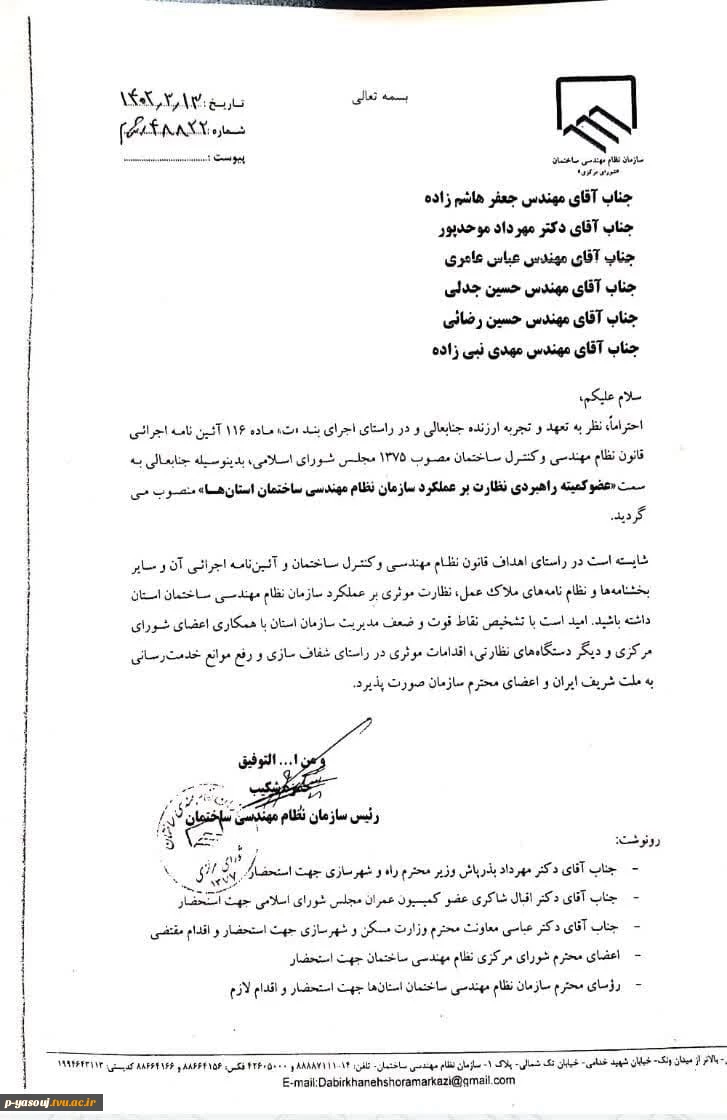 بسمه تعالی
تاریخ: ۱۴۰۲٫۳٫۱۳
شماره: ۴۸۸۲۲
پیوست :
سازمان نظام مهندسی ساختمان
«شورای مرکزی»
جناب آقای مهندس جعفر هاشم زاده
جناب آقای دکتر مهرداد موحدپور
جناب آقای مهندس عباس عامری
جناب آقای مهندس حسین جدلی
جناب آقای مهندس حسین رضائی
جناب آقای مهندس مهدی نبی زاده
سلام علیکم،
احتراماً، نظر به تعهد و تجربه ارزنده جنابعالی و در راستای اجرای بند «ت» ماده ۱۱۶ آئین نامه اجرائی
قانون نظام مهندسی و کنترل ساختمان مصوب ۱۳۷۵ مجلس شورای اسلامی، بدینوسیله جنابعالی به
سمت «عضو کمیته راهبردی نظارت بر عملکرد سازمان نظام مهندسی ساختمان استان‌ها» منصوب می
گردید.
شایسته است در راستای اهداف قانون نظام مهندسی و کنترل ساختمان و آئین‌نامه اجرائی آن و سایر
بخشنامه‌ها و نظام نامه‌های ملاک عمل، نظارت موثری بر عملکرد سازمان نظام مهندسی ساختمان استان
داشته باشید. امید است با تشخیص نقاط قوت و ضعف مدیریت سازمان استان با همکاری اعضای شورای
مرکزی و دیگر دستگاه‌های نظارتی، اقدامات موثری در راستای شفاف سازی و رفع موانع خدمت‌رسانی
به ملت شریف ایران و اعضای محترم سازمان صورت پذیرد.
و من ا... التوفیق
شکیب
رئیس سازمان نظام مهندسی ساختمان
شورای مرکزی
۱۳۷۷
رونوشت:
- جناب آقای دکتر مهرداد بذرپاش وزیر محترم راه و شهرسازی جهت استحضار
- جناب آقای دکتر اقبال شاکری عضو کمیسیون عمران مجلس شورای اسلامی جهت استحضار
- جناب آقای دکتر عباسی معاونت محترم وزارت مسکن و شهرسازی جهت استحضار و اقدام مقتضی
- اعضای محترم شورای مرکزی نظام مهندسی ساختمان جهت استحضار
- رؤسای محترم سازمان نظام مهندسی ساختمان استان‌ها جهت استحضار و اقدام لازم
- بالاتر از میدان ونک- خیابان شهید خدامی- خیابان تک شمالی- پلاک ۱- سازمان نظام مهندسی ساختمان- تلفن: ۱۴-۸۸۸۷۱۱۱۰ و ۴۲۶۰۵۰۰۰ فکس: ۸۸۶۶۴۱۵۶ و ۸۸۶۶۴۱۶۶ کدپستی: ۱۹۹۴۶۴۳۱۱۳
E-mail:Dabirkhanehshoramarkazi@gmail.com
p-yasouj.tvu.ac.ir